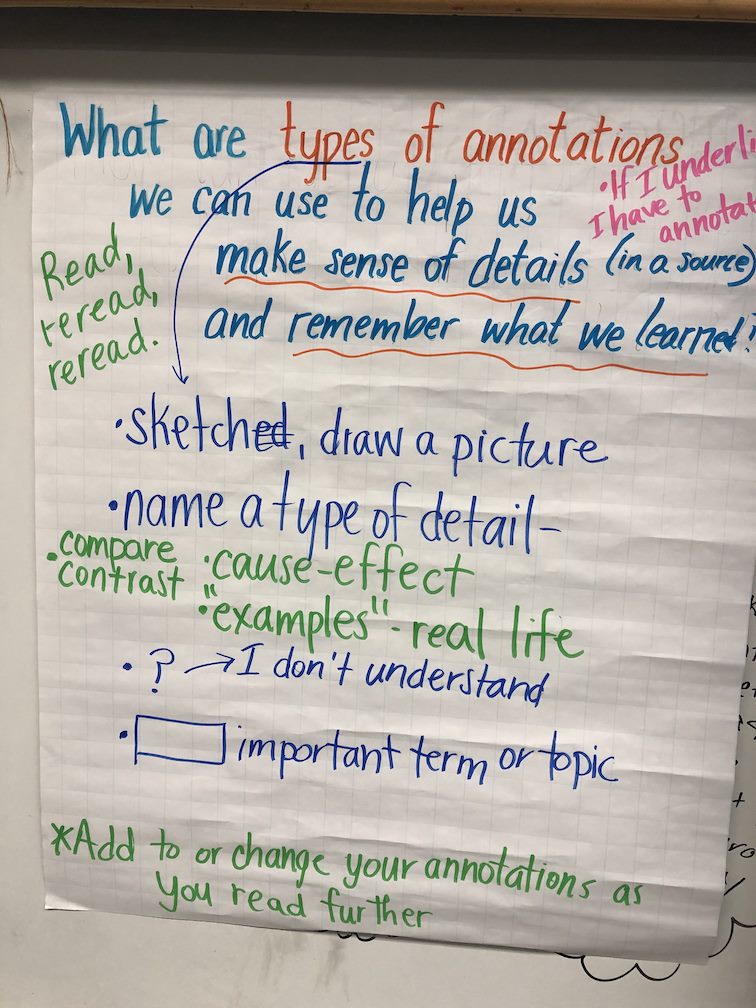 What are types of annotations
we can use to help us
make sense of details (in a source)
and remember what we learned?
•If I underli
I have to
annotat
Read,
reread,
reread.
•sketch, draw a picture
•name a type of detail-
•compare
contrast
•cause-effect
•"examples"- real life
•? → I don't understand
• important term or topic
*Add to or change your annotations as
you read further